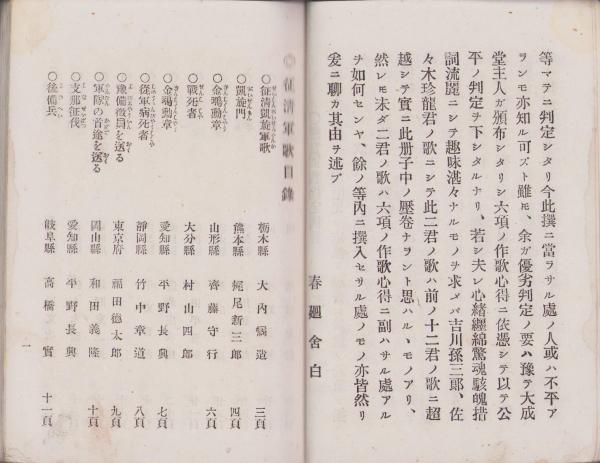 等マテニ判定シタリ今此撰ニ當ラサル處ノ人或ハ不平ア
ランモ亦知ル可ズト雖モ、余ガ優劣判定ノ要ハ豫テ大成
堂主人ガ頒布シタリシ六項ノ作歌心得ニ依憑シテ以テ公
平ノ判定ヲ下シタルナリ、若シ夫レ心緒纏綿驚魂駭魄措
詞流麗ニシテ趣味湛々ナルモノヲ求メバ吉川孫三郎、佐
々木珍龍君ノ歌ニシテ此二君ノ歌ハ前ノ十二君ノ歌ニ超
越シテ實ニ此册子中ノ壓卷ナラント思ハルヽモノアリ、
然レモ未ダ二君ノ歌ハ六項ノ作歌心得ニ副ハサル處アル
ヲ如何センヤ、餘ノ等內ニ撰入セサル處ノモノ亦皆然リ
爰ニ聊カ其由ヲ述ブ
春廼舍白
◎征清軍歌目錄
○征清凱旋軍歌 栃木縣 大內 造 三頁
○凱旋門 熊本縣 尾新三郎 四頁
○金鵄勳章 山形縣 齊藤守行 六頁
○戰死者 大分縣 村山四郎
○金鵄勳章 愛知縣 平野長興 七頁
○從軍病死者 靜岡縣 竹中章道 八頁
○豫備徵員を送る 東京府 福田德太郎 九頁
○軍隊の首途を送る 岡山縣 和田義隆 十頁
○支那征伐 愛知縣 平野長興
○後備兵 岐阜縣 高橋實 十一頁
一